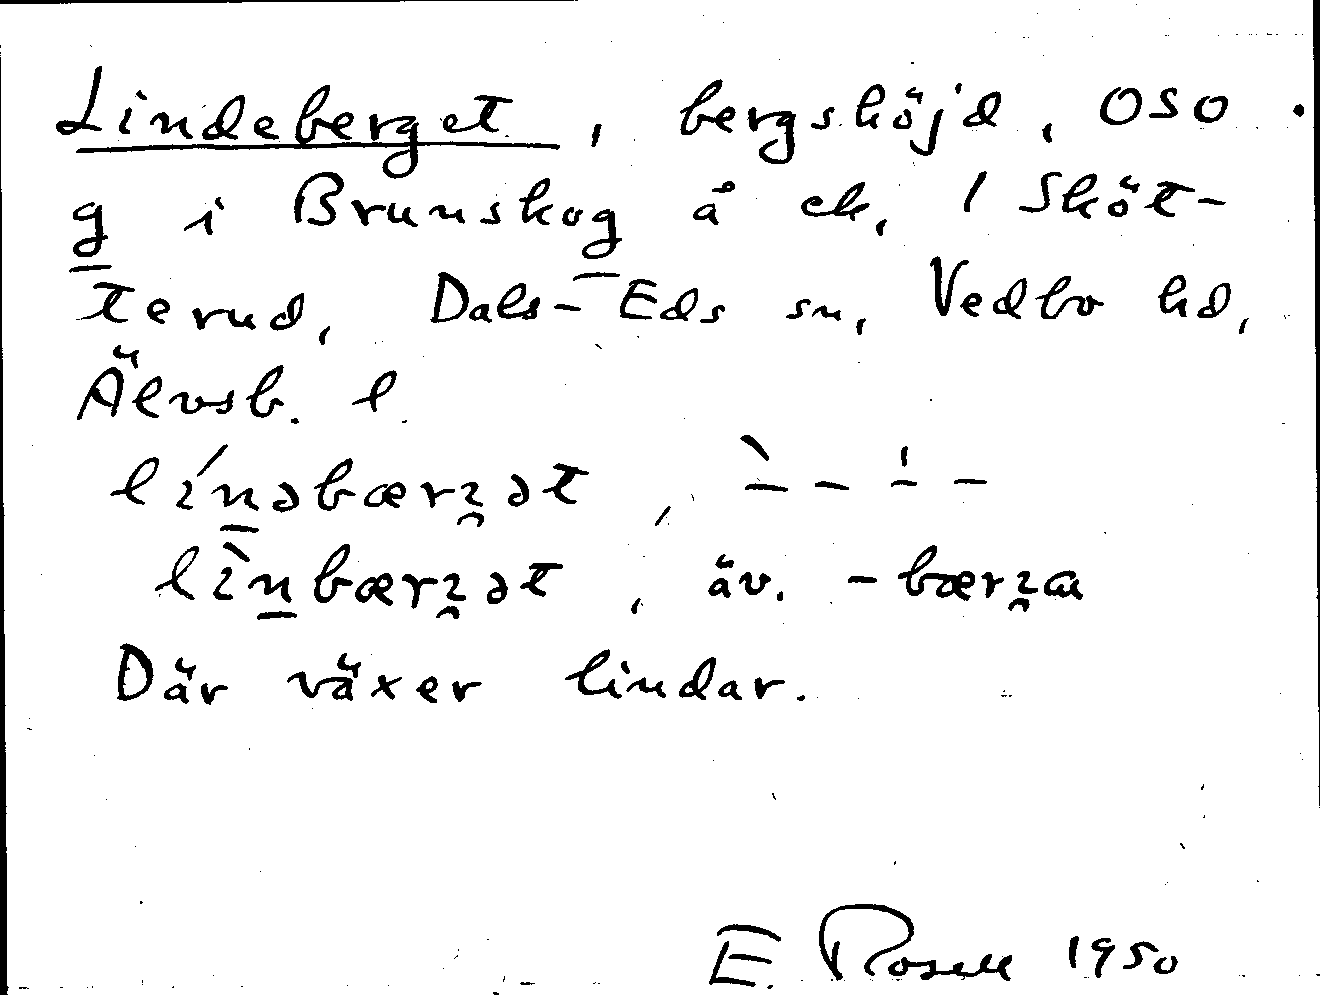 Lindeberget, bergshöjd, OSO.
g i Brunskog å ek. 1 Sköt-
terud, Dals-Eds sn, Vedbo hd,
Älvsb. l.
línəbærʒət, ̀– – ̍– –
lìnbærʒət, äv. -bærʒa
Där växer lindar.
E. Rosell 1950